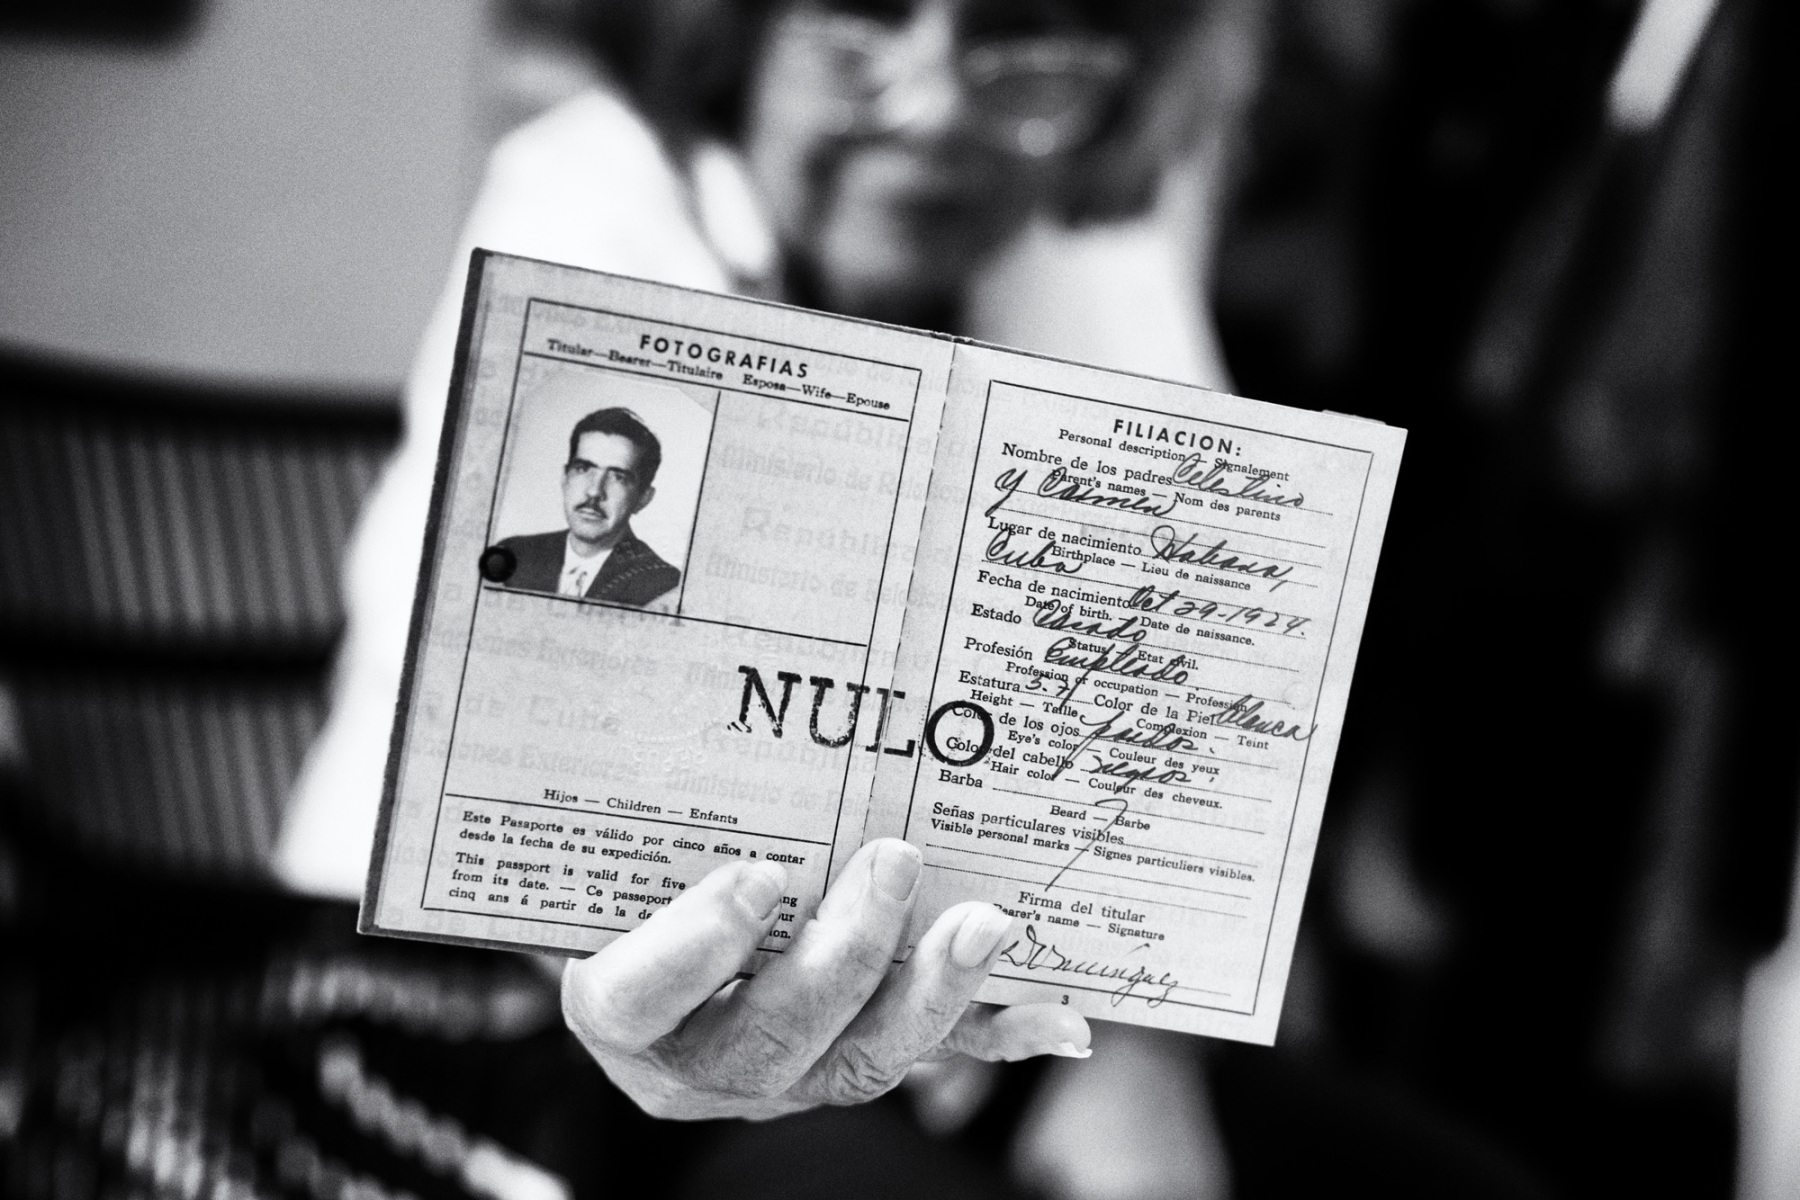 FOTOGRAFIAS
Titular—Bearer—Titulaire Esposa—Wife—Epouse
NULO
Hijos — Children — Enfants
Este Pasaporte es válido por cinco años a contar
desde la fecha de su expedición.
This passport is valid for five
from its date. — Ce passeport
cinq ans á partir de la
FILIACION:
Personal description — Signalement
Nombre de los padres Celestino
Parent's names — Nom des parents
y Carmen
Lugar de nacimiento Habana,
Birthplace — Lieu de naissance
Cuba
Fecha de nacimiento Oct 29-1924.
Date of birth. — Date de naissance.
Estado Casado
Status — Etat civil.
Profesión Empleado.
Profession or occupation — Profession
Estatura 5-7 Color de la Piel blanca
Height — Taille Complexion — Teint
Color de los ojos pardos.
Eye's color — Couleur des yeux
Color del cabello negros.
Hair color — Couleur des cheveux.
Barba
Beard — Barbe
Señas particulares visibles
Visible personal marks — Signes particuliers visibles.
Firma del titular
Bearer's name — Signature
Domínguez
3